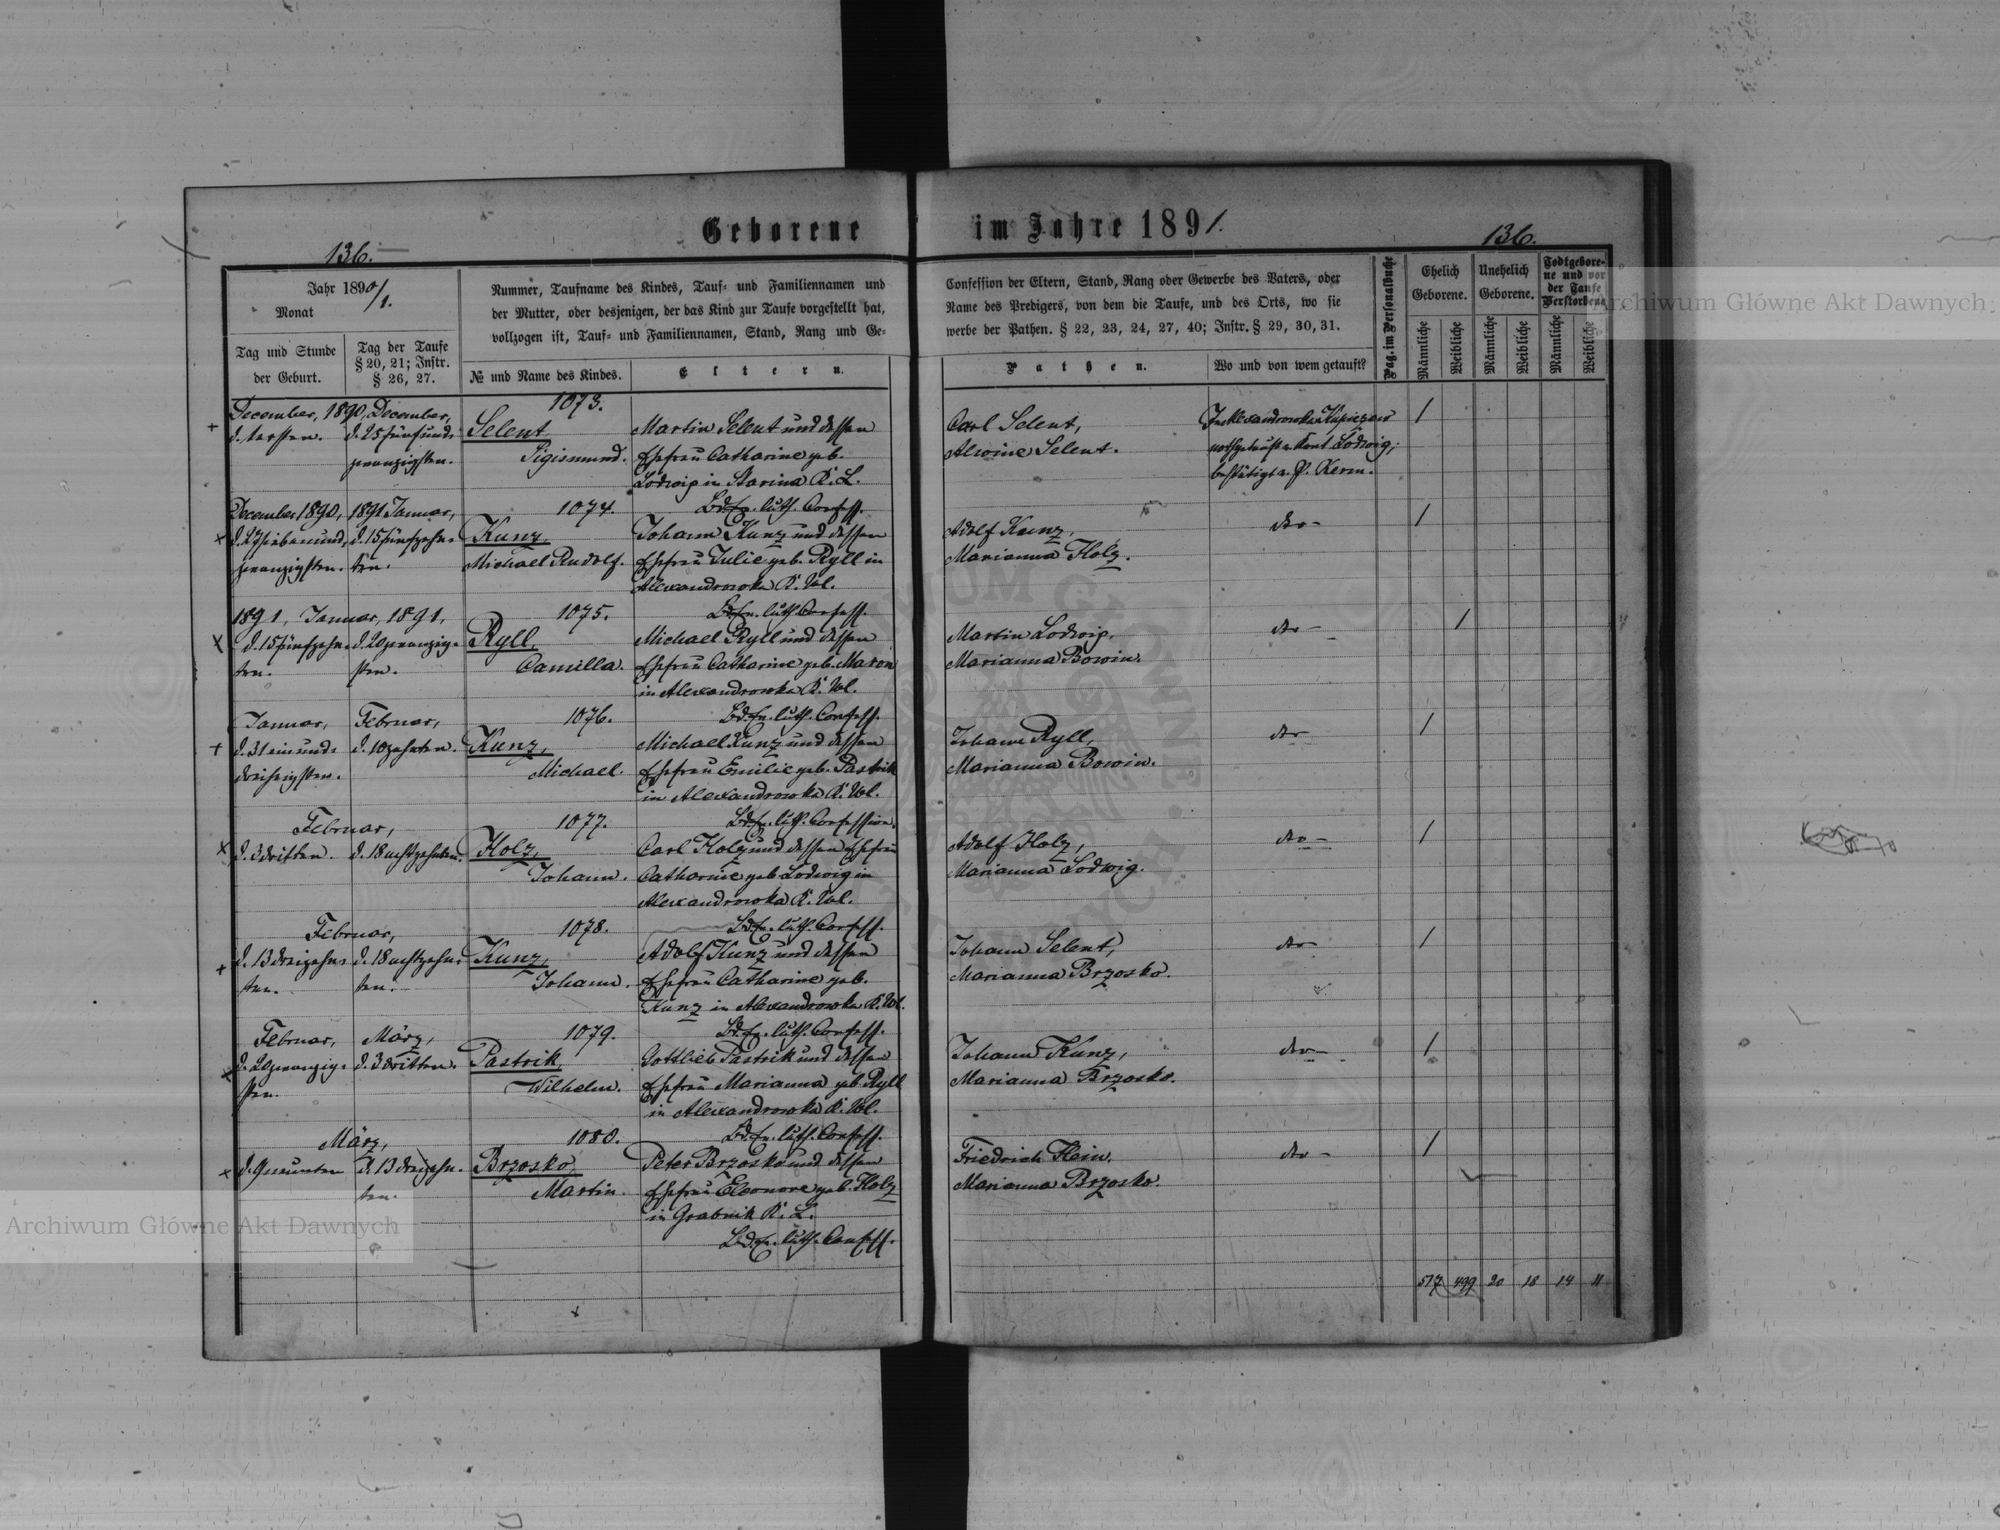 Geborene im Jahre 1891.
136.
136.
Jahr 1890/1.
Monat
Tag und Stunde
der Geburt.
Tag der Taufe
§ 20, 21; Instr.
§ 26, 27.
Nummer, Taufname des Kindes, Tauf- und Familiennamen und
der Mutter, oder desjenigen, der das Kind zur Taufe vorgestellt hat,
vollzogen ist, Tauf- und Familiennamen, Stand, Rang und Ge-
№ und Name des Kindes.
Eltern.
Confession der Eltern, Stand, Rang oder Gewerbe des Vaters, oder
Name des Predigers, von dem die Taufe, und des Orts, wo sie
werbe der Pathen. § 22, 23, 24, 27, 40; Instr. § 29, 30, 31.
Pathen.
Wo und von wem getauft?
Pag. im Personalbuche
Ehelich
Geborene.
Unehelich
Geborene.
Todtgebore-
ne und vor
der Taufe
Verstorbene
Männliche
Weibliche
Männliche
Weibliche
Männliche
Weibliche
December, 1890, December,
d. ersten. d. 25 fünfund-
zwanzigsten.
1073.
Selent
Sigismund.
Martin Selent und dessen
Ehefrau Catharine geb.
Lodwig in Starina K. L.
Bd. ev. luth. Confess.
Carl Selent,
Alwine Selent.
nothgetauft v. Kant. Lodwig;
bestätigt v. P. Kerm.
1
December 1890, 1891 Januar,
d. 27 siebenund- d. 15 fünfzehn-
zwanzigsten. ten.
1074.
Kunz,
Michael Rudolf.
Johann Kunz und dessen
Ehefrau Julie geb. Ryll in
Alexandrowka K. Wl.
Bd. ev. luth. Confess.
Adolf Kunz,
Marianna Holz.
do -
1
1891, Januar, 1891,
d. 15 fünfzehn- d. 20 zwanzig-
ten. sten.
1075.
Ryll,
Camilla.
Michael Ryll und dessen
Ehefrau Catharine geb. Maron
in Alexandrowka K. Wl.
Bd. ev. luth. Confess.
Martin Lodwig,
Marianna Bowin.
do -
1
Januar, Februar,
d. 31 einund- d. 10 zehnten.
dreißigsten.
1076.
Kunz,
Michael.
Michael Kunz und dessen
Ehefrau Emilie geb. Pastrik
in Alexandrowka K. Wl.
Bd. ev. luth. Confession.
Johann Ryll,
Marianna Bowin.
do
1
Februar,
d. 3 dritten. d. 18 achtzehnten.
1077.
Holz,
Johann.
Carl Holz und dessen Ehefrau
Catharine geb. Lodwig in
Alexandrowka K. Wl.
Bd. ev. luth. Confess.
Adolf Holz,
Marianna Lodwig.
do -
1
Februar,
d. 13 dreizehn- d. 18 achtzehn-
ten. ten.
1078.
Kunz,
Johann.
Adolf Kunz und dessen
Ehefrau Catharine geb.
Kunz in Alexandrowka K. Wl.
Bd. ev. luth. Confess.
Johann Selent,
Marianna Brzosko.
do
1
Februar, März,
d. 20 zwanzig- d. 3 dritten.
sten.
1079.
Pastrik
Wilhelm.
Gottlieb Pastrik und dessen
Ehefrau Marianna geb. Ryll
in Alexandrowka K. Wl.
Bd. ev. luth. Confess.
Johann Kunz,
Marianna Brzosko.
do -
1
März,
d. 9 neunten d. 13 dreizehn-
ten.
1080.
Brzosko,
Martin.
Peter Brzosko und dessen
Ehefrau Eleonore geb. Holz
in Grabnik K. L.
Bd. ev. luth. Confess.
Friedrich Hein,
Marianna Brzosko.
do -
1
517 499 20 18 14 11
Archiwum Główne Akt Dawnych
Archiwum Główne Akt Dawnych